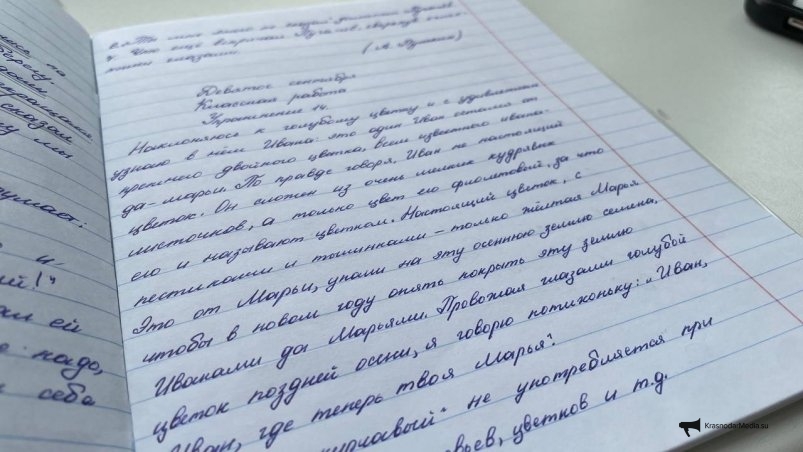 есь по
берегу.
дами
украшалась.
сказал
му мы
думал:
и-
ий!"
ей
е надо,
себа
(А. Пушкин)
Девятое сентября
Классная работа
Упражнение 14.
Наклоняюсь к голубому цветку и с удивлением
узнаю в нём Ивана: это один Иван остался от
прежнего двойного цветка, всем известного ивана-
да-марьи. По правде говоря, Иван не настоящий
цветок. Он сложен из очень мелких кудрявых
листочков, а только цвет его фиолетовый, за что
его и называют цветком. Настоящий цветок, с
пестиками и тычинками - только жёлтая Марья.
Это от Марьи, упали на эту осеннюю землю семена,
чтобы в новом году опять покрыть эту землю
Иванами да Марьями. Провожая глазами голубой
цветок поздней осени, я говорю потихоньку: „Иван,
Иван, где теперь твоя Марья?
не употребляется при
ьев, цветков и т.д.
KrasnodarMedia.su